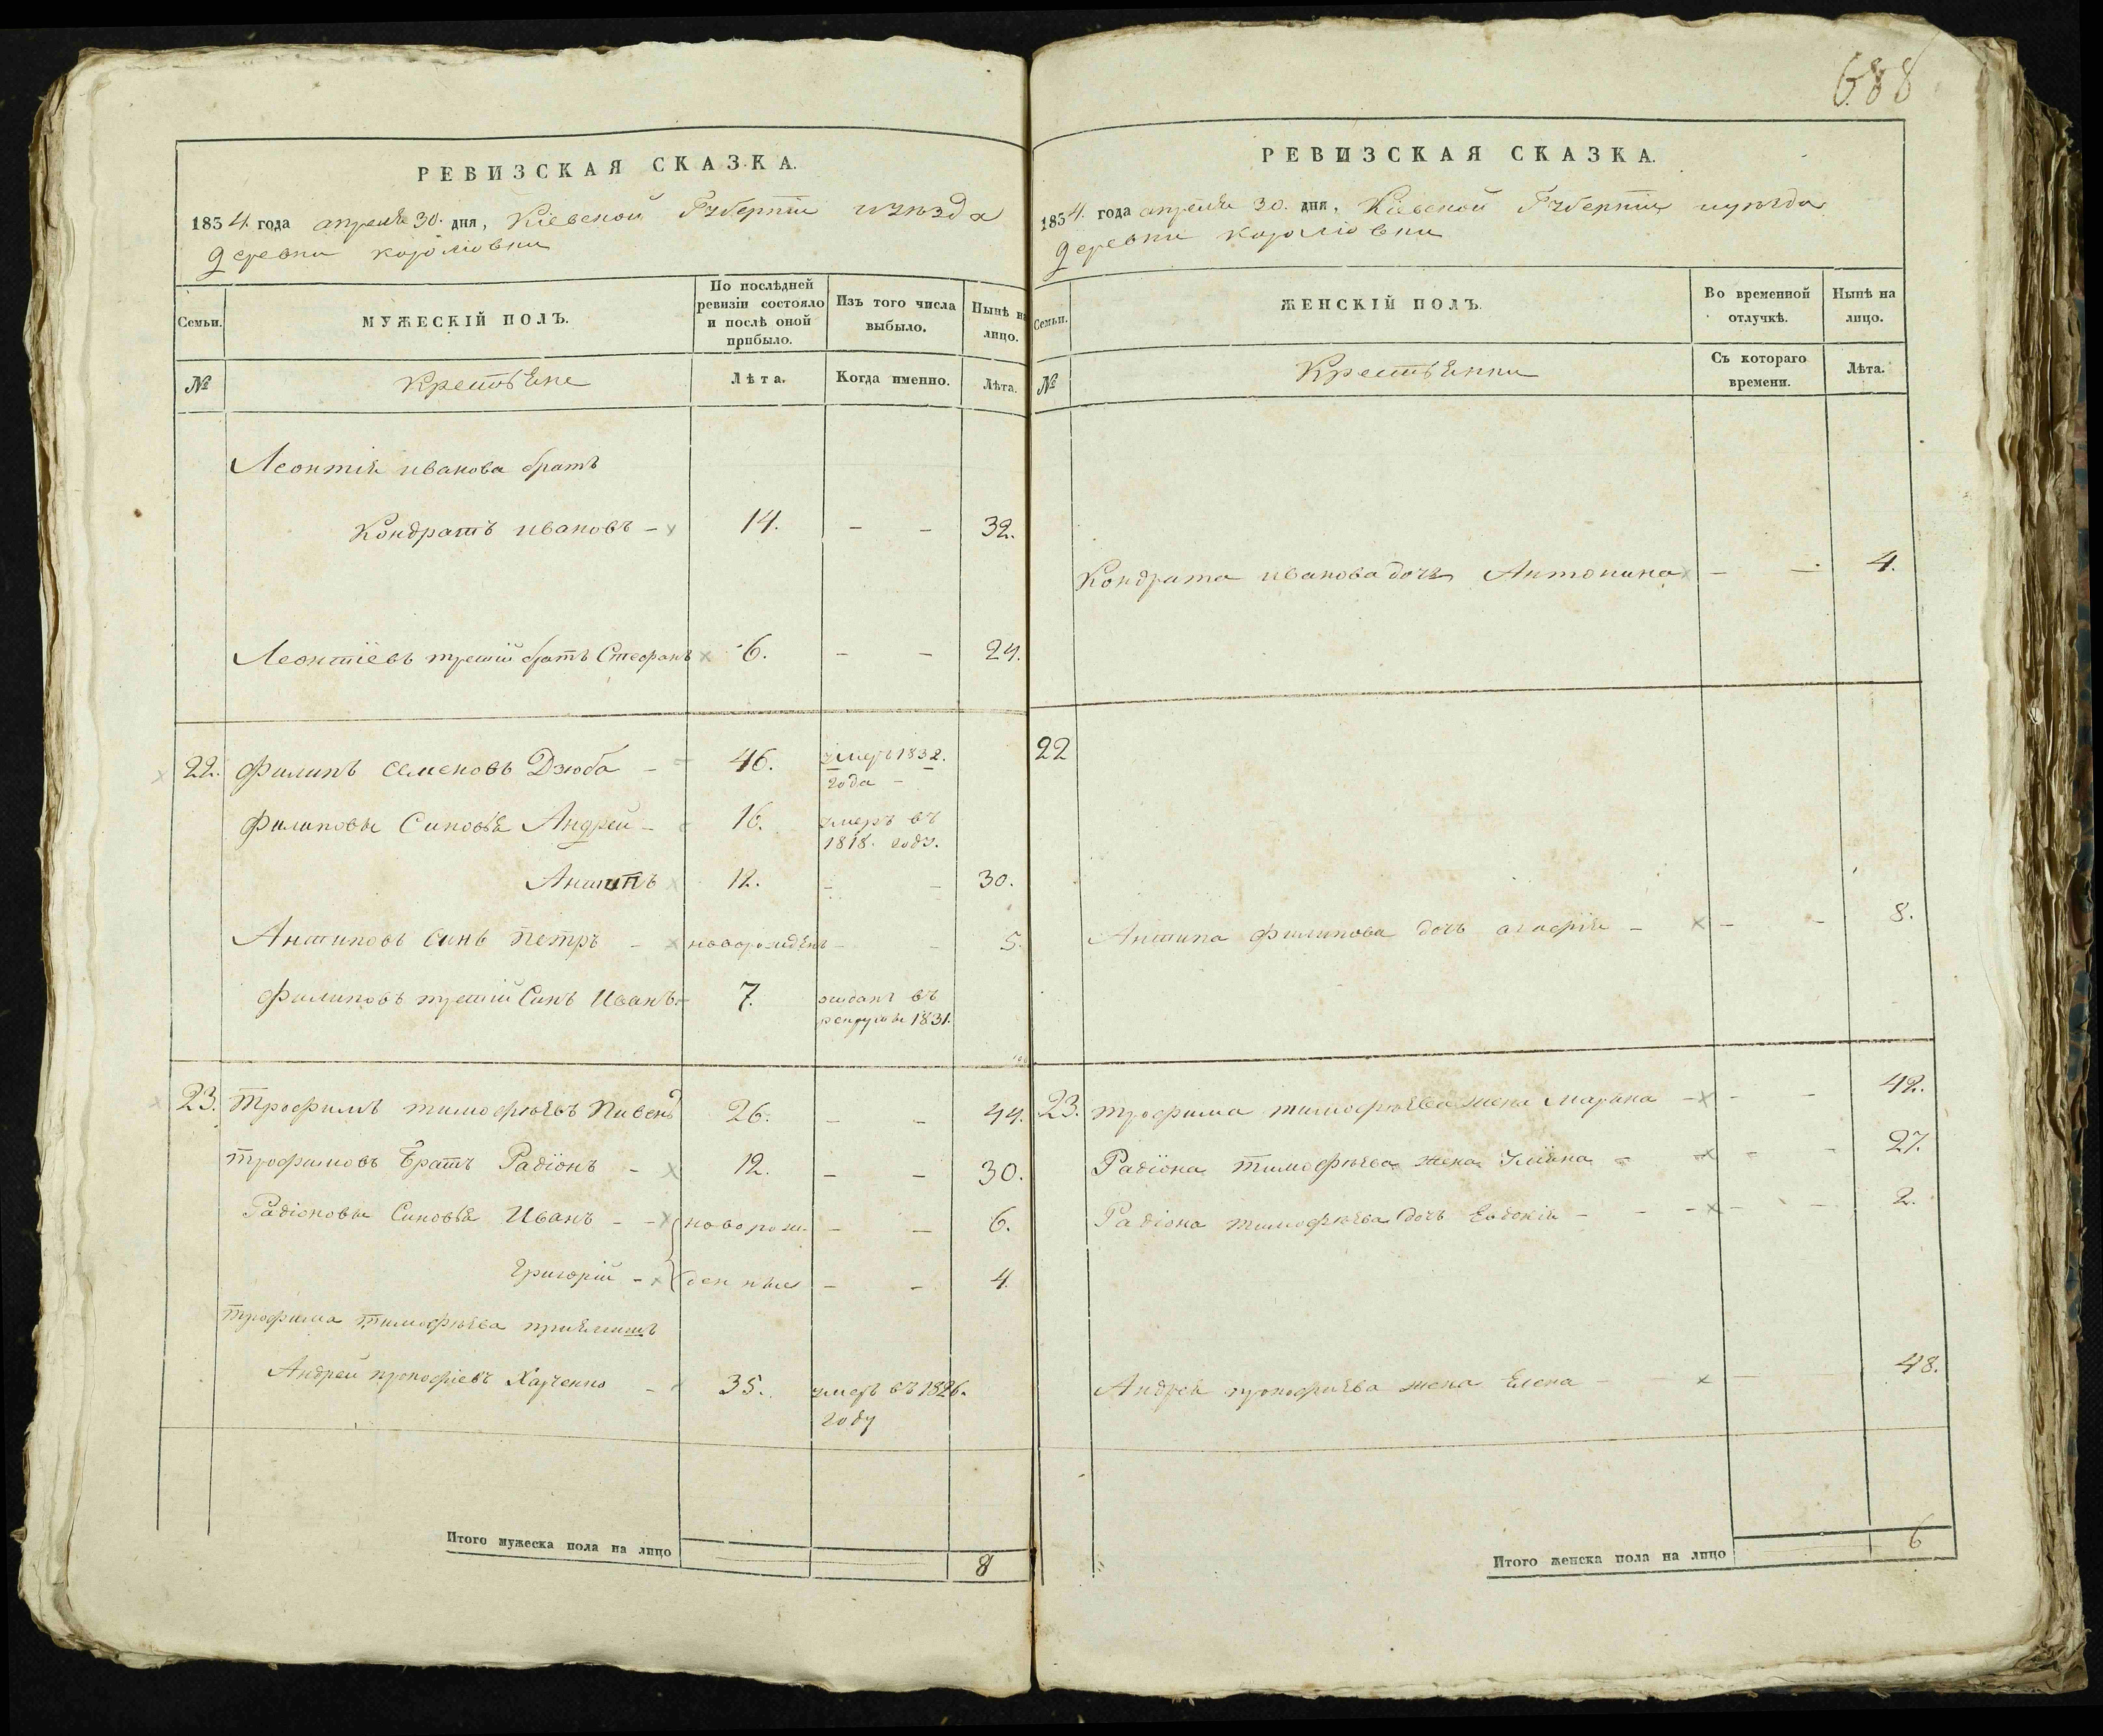 688
РЕВИЗСКАЯ СКАЗКА.
1834 года апреля 30. дня, Кіевской Губерніи и уѣзда
деревни королювки
Семьи.
МУЖЕСКІЙ ПОЛЪ.
По послѣдней ревизіи состояло и послѣ оной прибыло.
Изъ того числа выбыло.
Нынѣ на лицо.
№
Крестьяне
Лѣта.
Когда именно.
Лѣта.
Леонтія иванова братъ
Кондратъ ивановъ - 14. - - 32.
Леонтіевъ третій братъ Стефанъ 6. - - 24.
22. Филипъ семеновъ Дзюба - 46. умеръ 1832.
года -
Филиповы Синовья Андрей - 16. умеръ въ
1818. году.
Антипъ 12. - - 30.
Антиповъ синъ Петръ - новорожденъ - - 5.
Филиповъ третій Синъ Иванъ - 7. отданъ въ
рекруты 1831.
23. Трофимъ тимофѣевъ Пивень 26. - - 44.
трофимовъ Братъ Радіонъ - 12. - - 30.
Радіоновы Синовья Иванъ - - новорож- - - 6.
Григорій - денные - - 4.
трофима тимофѣева приемишъ
Андрей прокофіевъ Харченко - 35. умеръ въ 1826.
году
Итого мужеска пола на лицо
8
РЕВИЗСКАЯ СКАЗКА.
1834. года апреля 30. дня, Кіевской Губерніи и уѣзда
деревни королювки
Семьи.
ЖЕНСКІЙ ПОЛЪ.
Во временной отлучкѣ.
Нынѣ на лицо.
№
Крестьянки
Съ котораго времени.
Лѣта.
Кондрата иванова дочь Антонина - - 4.
22
Антипа филипова дочь агафія - - - 8.
23. трофима тимофѣева жена Марина - - - 42.
Радіона тимофѣева жена Уліяна - - - 27.
Радіона тимофѣева дочь Евдокія - - - - - 2.
Андрея прокофиева жена Елена - - 48.
Итого женска пола на лицо
6